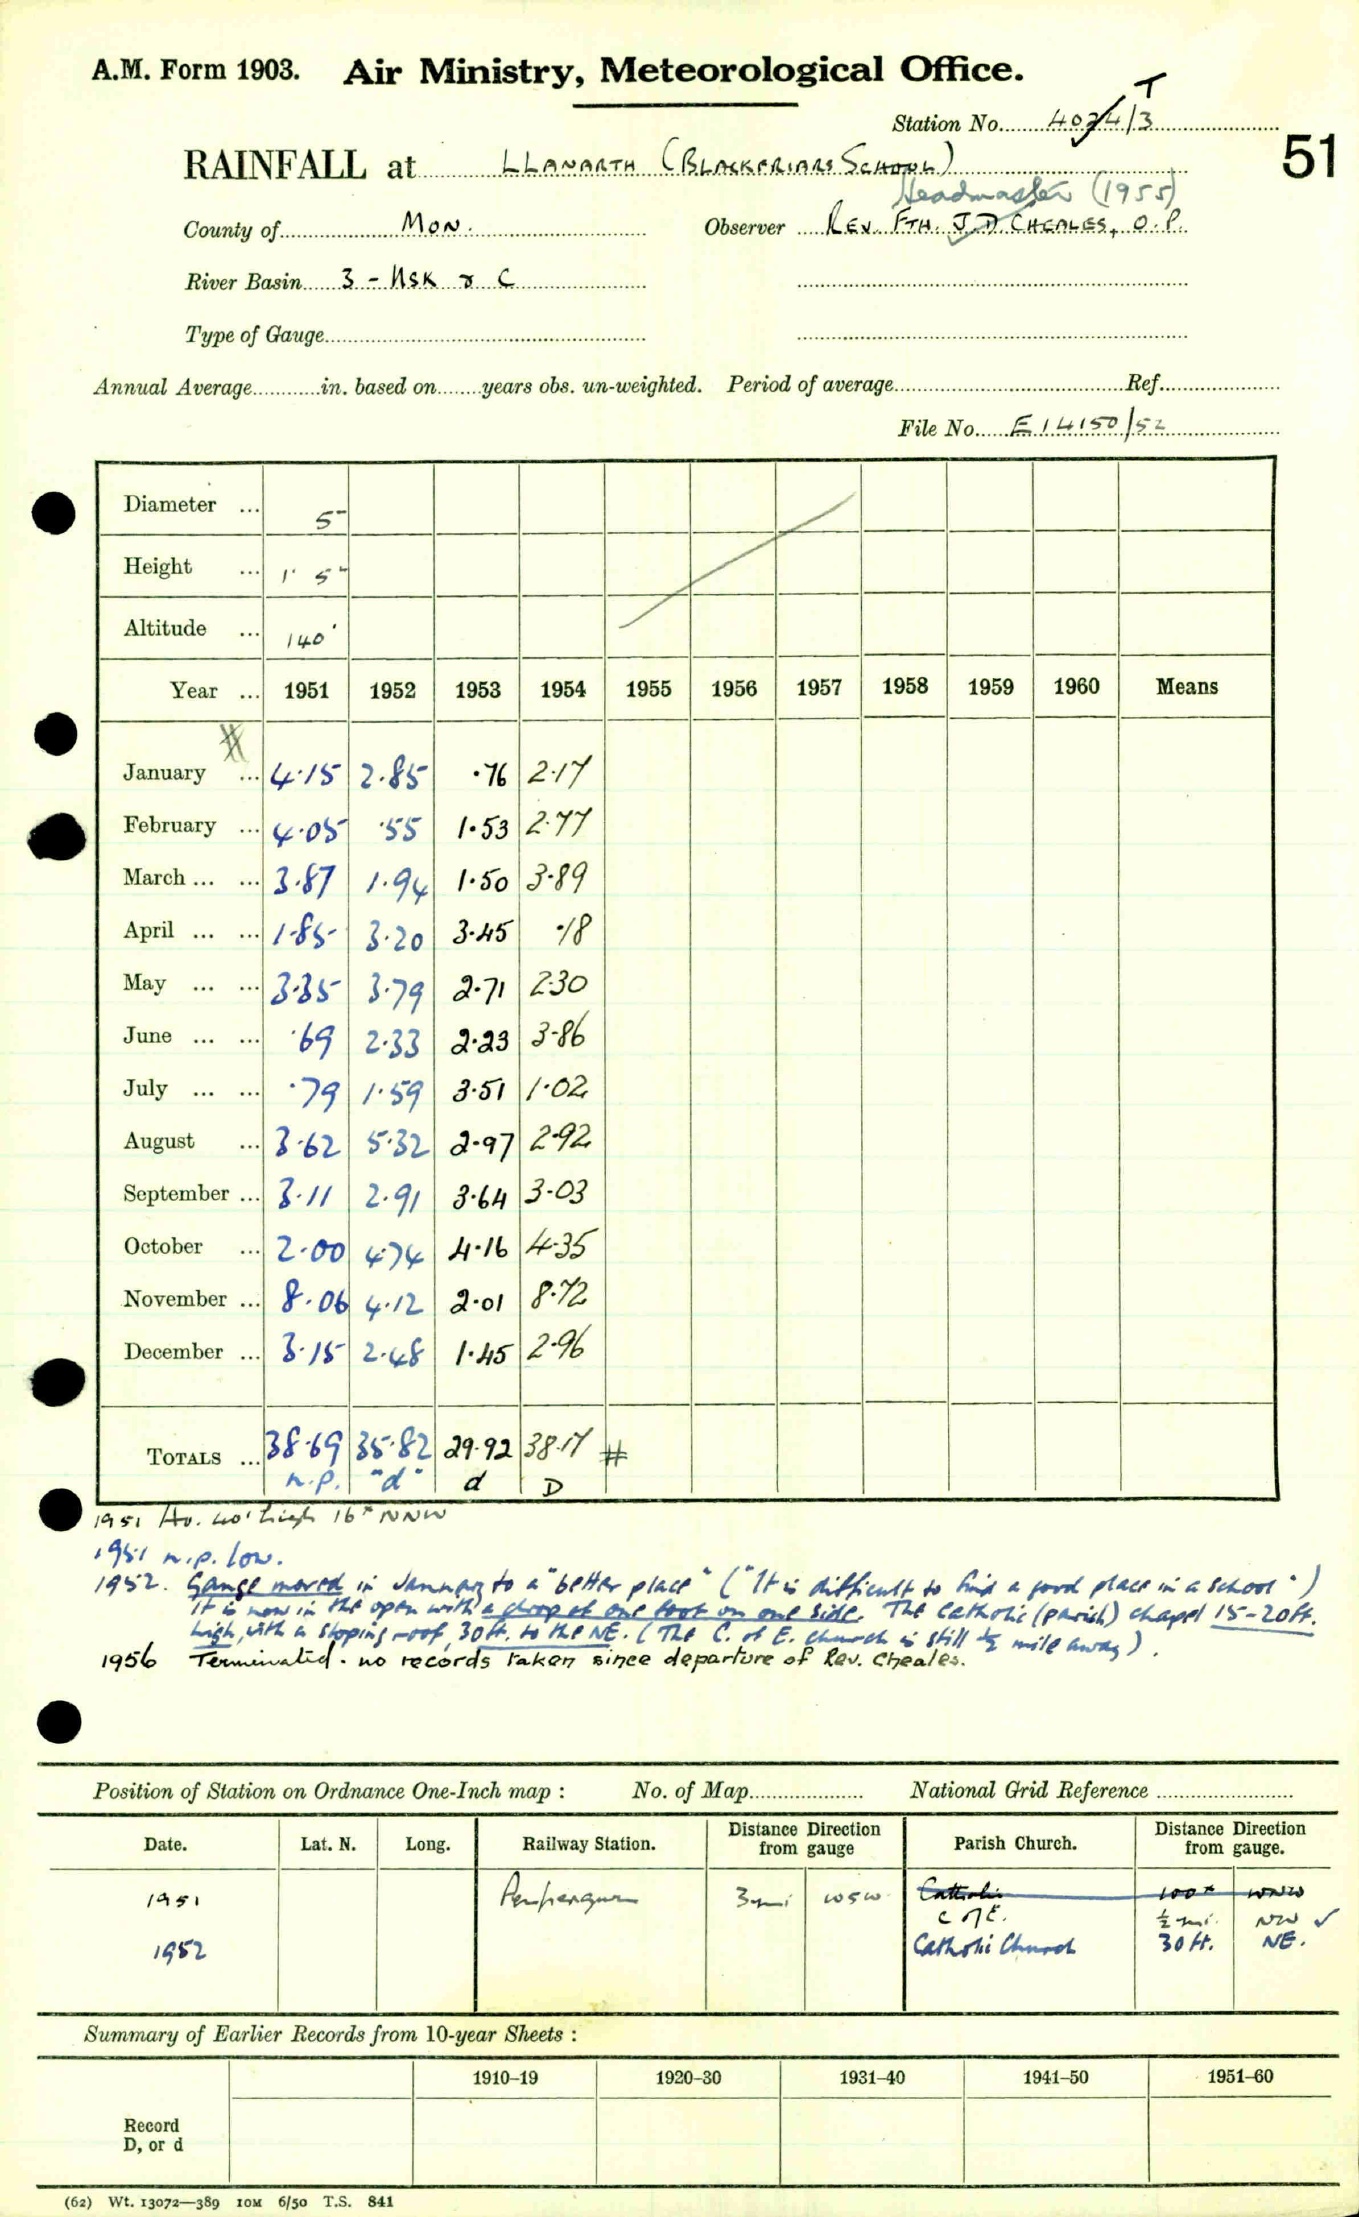 A.M. Form 1903. Air Ministry, Meteorological Office.
T
Station No. 4024/3
51
RAINFALL at LLANARTH (BLACKFRIARS SCHOOL)
Headmaster (1955)
County of MON. Observer REV. FTH. J.D. CHEALES, O.P.
River Basin 3 - USK & C
Type of Gauge
Annual Average in. based on years obs. un-weighted. Period of average Ref.
File No. E14150/52
Diameter ... 5"
Height ... 1' 5"
Altitude ... 140'
Year ... 1951 1952 1953 1954 1955 1956 1957 1958 1959 1960 Means
January ... 4.15 2.85 .76 2.17
February ... 4.05 .55 1.53 2.77
March ... ... 3.87 1.94 1.50 3.89
April ... ... 1.85 3.20 3.45 .18
May ... ... 3.35 3.79 2.71 2.30
June ... ... .69 2.33 2.23 3.86
July ... ... .79 1.59 3.51 1.02
August ... 3.62 5.32 2.97 2.92
September ... 3.11 2.91 3.64 3.03
October ... 2.00 4.74 4.16 4.35
November ... 8.06 4.12 2.01 8.72
December ... 3.15 2.48 1.45 2.96
TOTALS ... 38.69 35.82 29.92 38.17 #
n.p. "d" d D
1951 Ho. 40' high 16x NNW
1951 n.p. low.
1952. Gauge moved in January to a "better place" ("It is difficult to find a good place in a school")
It is now in the open with a drop of one foot on one side. The Catholic (parish) chapel 15-20ft.
high, with a sloping roof, 30ft. to the NE. (The C. of E. church is still ½ mile away).
1956 Terminated. no records taken since departure of Rev. Cheales.
Position of Station on Ordnance One-Inch map : No. of Map National Grid Reference
Date. Lat. N. Long. Railway Station. Distance Direction from gauge Parish Church. Distance Direction from gauge.
1951 3 mi WSW Catholic 100x WNW
C of E. ½ mi. NW ✓
1952 Catholic Church 30 ft. NE.
Summary of Earlier Records from 10-year Sheets :
1910–19 1920–30 1931–40 1941–50 1951–60
Record
D, or d
(62) Wt. 13072—389 10M 6/50 T.S. 841